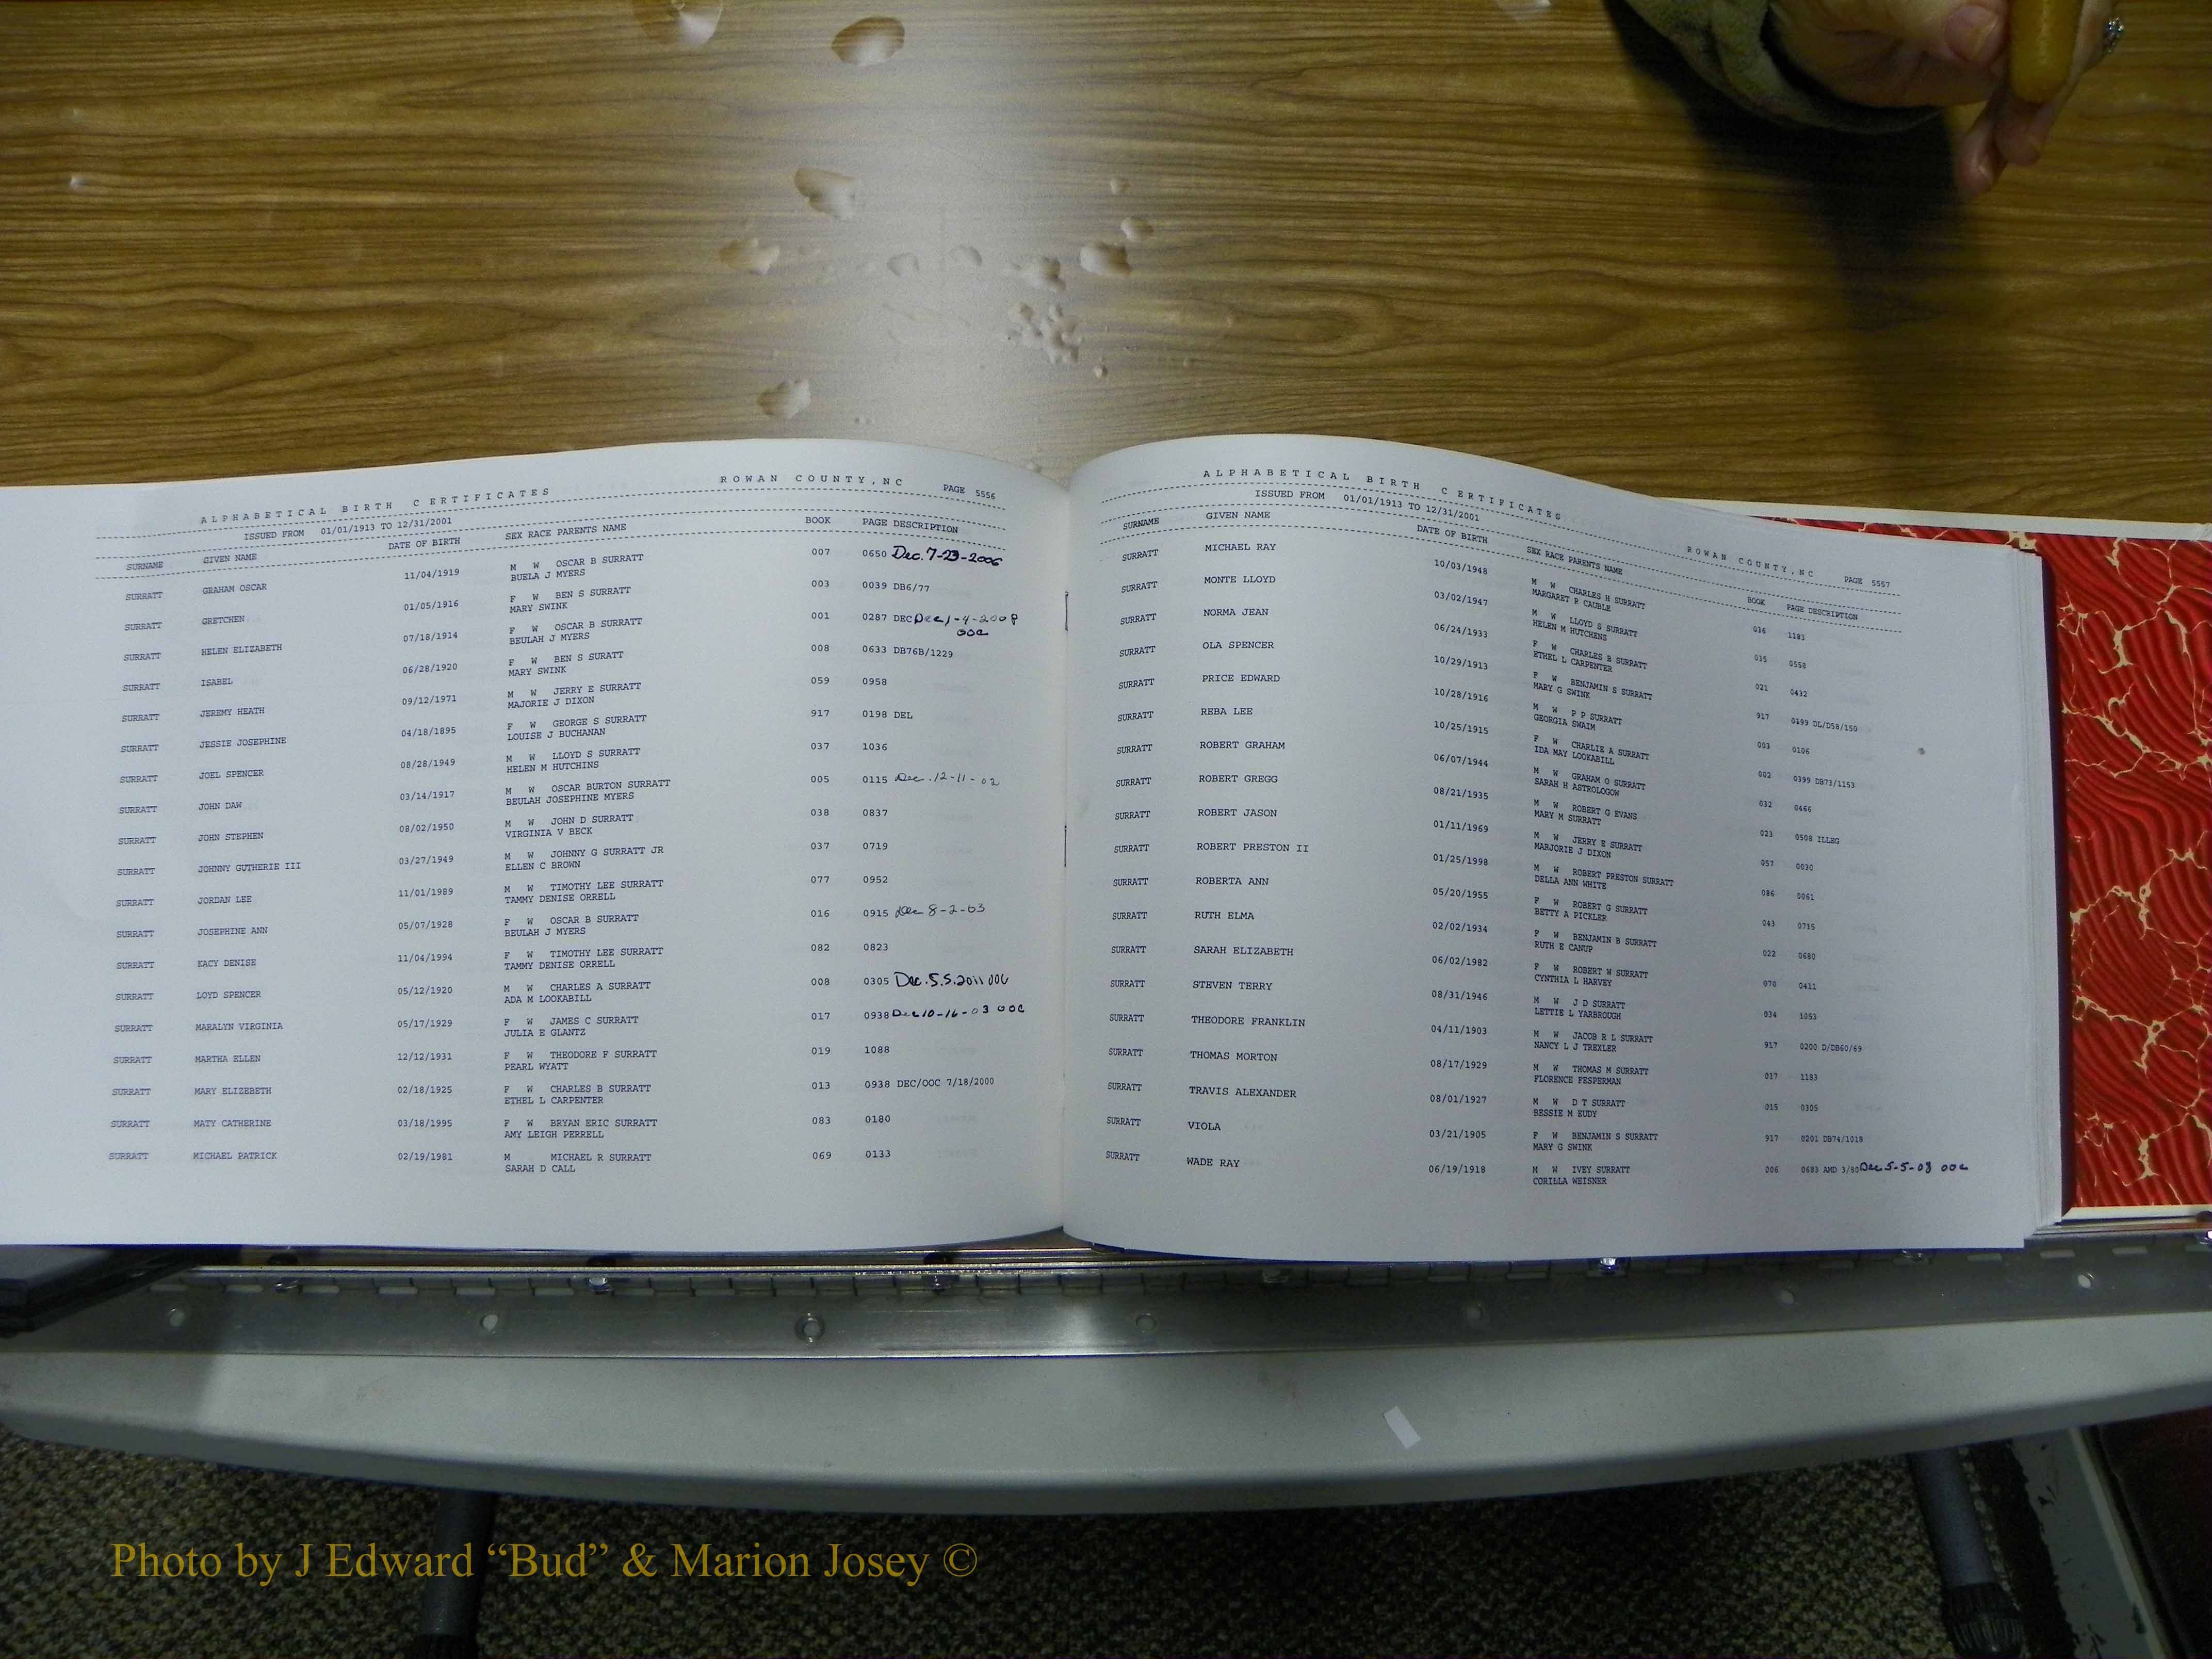 ALPHABETICAL BIRTH CERTIFICATES ROWAN COUNTY, NC PAGE 5556
ISSUED FROM 01/01/1913 TO 12/31/2001
SURNAME GIVEN NAME DATE OF BIRTH SEX RACE PARENTS NAME BOOK PAGE DESCRIPTION
SURRATT GRAHAM OSCAR 11/04/1919 M W OSCAR B SURRATT 007 0650 Dec. 7-23-2006
BUELA J MYERS
SURRATT GRETCHEN 01/05/1916 F W BEN S SURRATT 003 0039 DB6/77
MARY SWINK
SURRATT HELEN ELIZABETH 07/18/1914 F W OSCAR B SURRATT 001 0287 DEC Dec 1-4-2008
BEULAH J MYERS OOC
SURRATT ISABEL 06/28/1920 F W BEN S SURATT 008 0633 DB76B/1229
MARY SWINK
SURRATT JEREMY HEATH 09/12/1971 M W JERRY E SURRATT 059 0958
MAJORIE J DIXON
SURRATT JESSIE JOSEPHINE 04/18/1895 F W GEORGE S SURRATT 917 0198 DEL
LOUISE J BUCHANAN
SURRATT JOEL SPENCER 08/28/1949 M W LLOYD S SURRATT 037 1036
HELEN M HUTCHINS
SURRATT JOHN DAW 03/14/1917 M W OSCAR BURTON SURRATT 005 0115 Dec. 12-11-02
BEULAH JOSEPHINE MYERS
SURRATT JOHN STEPHEN 08/02/1950 M W JOHN D SURRATT 038 0837
VIRGINIA V BECK
SURRATT JOHNNY GUTHERIE III 03/27/1949 M W JOHNNY G SURRATT JR 037 0719
ELLEN C BROWN
SURRATT JORDAN LEE 11/01/1989 M W TIMOTHY LEE SURRATT 077 0952
TAMMY DENISE ORRELL
SURRATT JOSEPHINE ANN 05/07/1928 F W OSCAR B SURRATT 016 0915 Dec 8-2-03
BEULAH J MYERS
SURRATT KACY DENISE 11/04/1994 F W TIMOTHY LEE SURRATT 082 0823
TAMMY DENISE ORRELL
SURRATT LOYD SPENCER 05/12/1920 M W CHARLES A SURRATT 008 0305 Dec. 5.5.2011 OOC
ADA M LOOKABILL
SURRATT MARALYN VIRGINIA 05/17/1929 F W JAMES C SURRATT 017 0938 Dec 10-16-03 OOC
JULIA E GLANTZ
SURRATT MARTHA ELLEN 12/12/1931 F W THEODORE F SURRATT 019 1088
PEARL WYATT
SURRATT MARY ELIZEBETH 02/18/1925 F W CHARLES B SURRATT 013 0938 DEC/OOC 7/18/2000
ETHEL L CARPENTER
SURRATT MATY CATHERINE 03/18/1995 F W BRYAN ERIC SURRATT 083 0180
AMY LEIGH PERRELL
SURRATT MICHAEL PATRICK 02/19/1981 M MICHAEL R SURRATT 069 0133
SARAH D CALL
ALPHABETICAL BIRTH CERTIFICATES ROWAN COUNTY, NC PAGE 5557
ISSUED FROM 01/01/1913 TO 12/31/2001
SURNAME GIVEN NAME DATE OF BIRTH SEX RACE PARENTS NAME BOOK PAGE DESCRIPTION
SURRATT MICHAEL RAY 10/03/1948 M W CHARLES H SURRATT 036 1183
MARGARET R CAUBLE
SURRATT MONTE LLOYD 03/02/1947 M W LLOYD S SURRATT 035 0558
HELEN M HUTCHENS
SURRATT NORMA JEAN 06/24/1933 F W CHARLES B SURRATT 021 0432
ETHEL L CARPENTER
SURRATT OLA SPENCER 10/29/1913 F W BENJAMIN S SURRATT 917 0199 DL/D58/150
MARY G SWINK
SURRATT PRICE EDWARD 10/28/1916 M W P P SURRATT 003 0106
GEORGIA SWAIM
SURRATT REBA LEE 10/25/1915 F W CHARLIE A SURRATT 002 0399 DB73/1153
IDA MAY LOOKABILL
SURRATT ROBERT GRAHAM 06/07/1944 M W GRAHAM O SURRATT 032 0466
SARAH H ASTROLOGOW
SURRATT ROBERT GREGG 08/21/1935 M W ROBERT G EVANS 023 0508 ILLEG
MARY M SURRATT
SURRATT ROBERT JASON 01/11/1969 M W JERRY E SURRATT 057 0030
MARJORIE J DIXON
SURRATT ROBERT PRESTON II 01/25/1998 M W ROBERT PRESTON SURRATT 086 0061
DELLA ANN WHITE
SURRATT ROBERTA ANN 05/20/1955 F W ROBERT G SURRATT 043 0715
BETTY A PICKLER
SURRATT RUTH ELMA 02/02/1934 F W BENJAMIN B SURRATT 022 0680
RUTH E CANUP
SURRATT SARAH ELIZABETH 06/02/1982 F W ROBERT W SURRATT 070 0411
CYNTHIA L HARVEY
SURRATT STEVEN TERRY 08/31/1946 M W J D SURRATT 034 1053
LETTIE L YARBROUGH
SURRATT THEODORE FRANKLIN 04/11/1903 M W JACOB R L SURRATT 917 0200 D/DB60/69
NANCY L J TREXLER
SURRATT THOMAS MORTON 08/17/1929 M W THOMAS M SURRATT 017 1183
FLORENCE FESPERMAN
SURRATT TRAVIS ALEXANDER 08/01/1927 M W D T SURRATT 015 0305
BESSIE M EUDY
SURRATT VIOLA 03/21/1905 F W BENJAMIN S SURRATT 917 0201 DB74/1018
MARY G SWINK
SURRATT WADE RAY 06/19/1918 M W IVEY SURRATT 006 0683 AMD 3/80 Dec 5-5-08 OOC
CORILLA WEISNER
Photo by J Edward “Bud” & Marion Josey ©